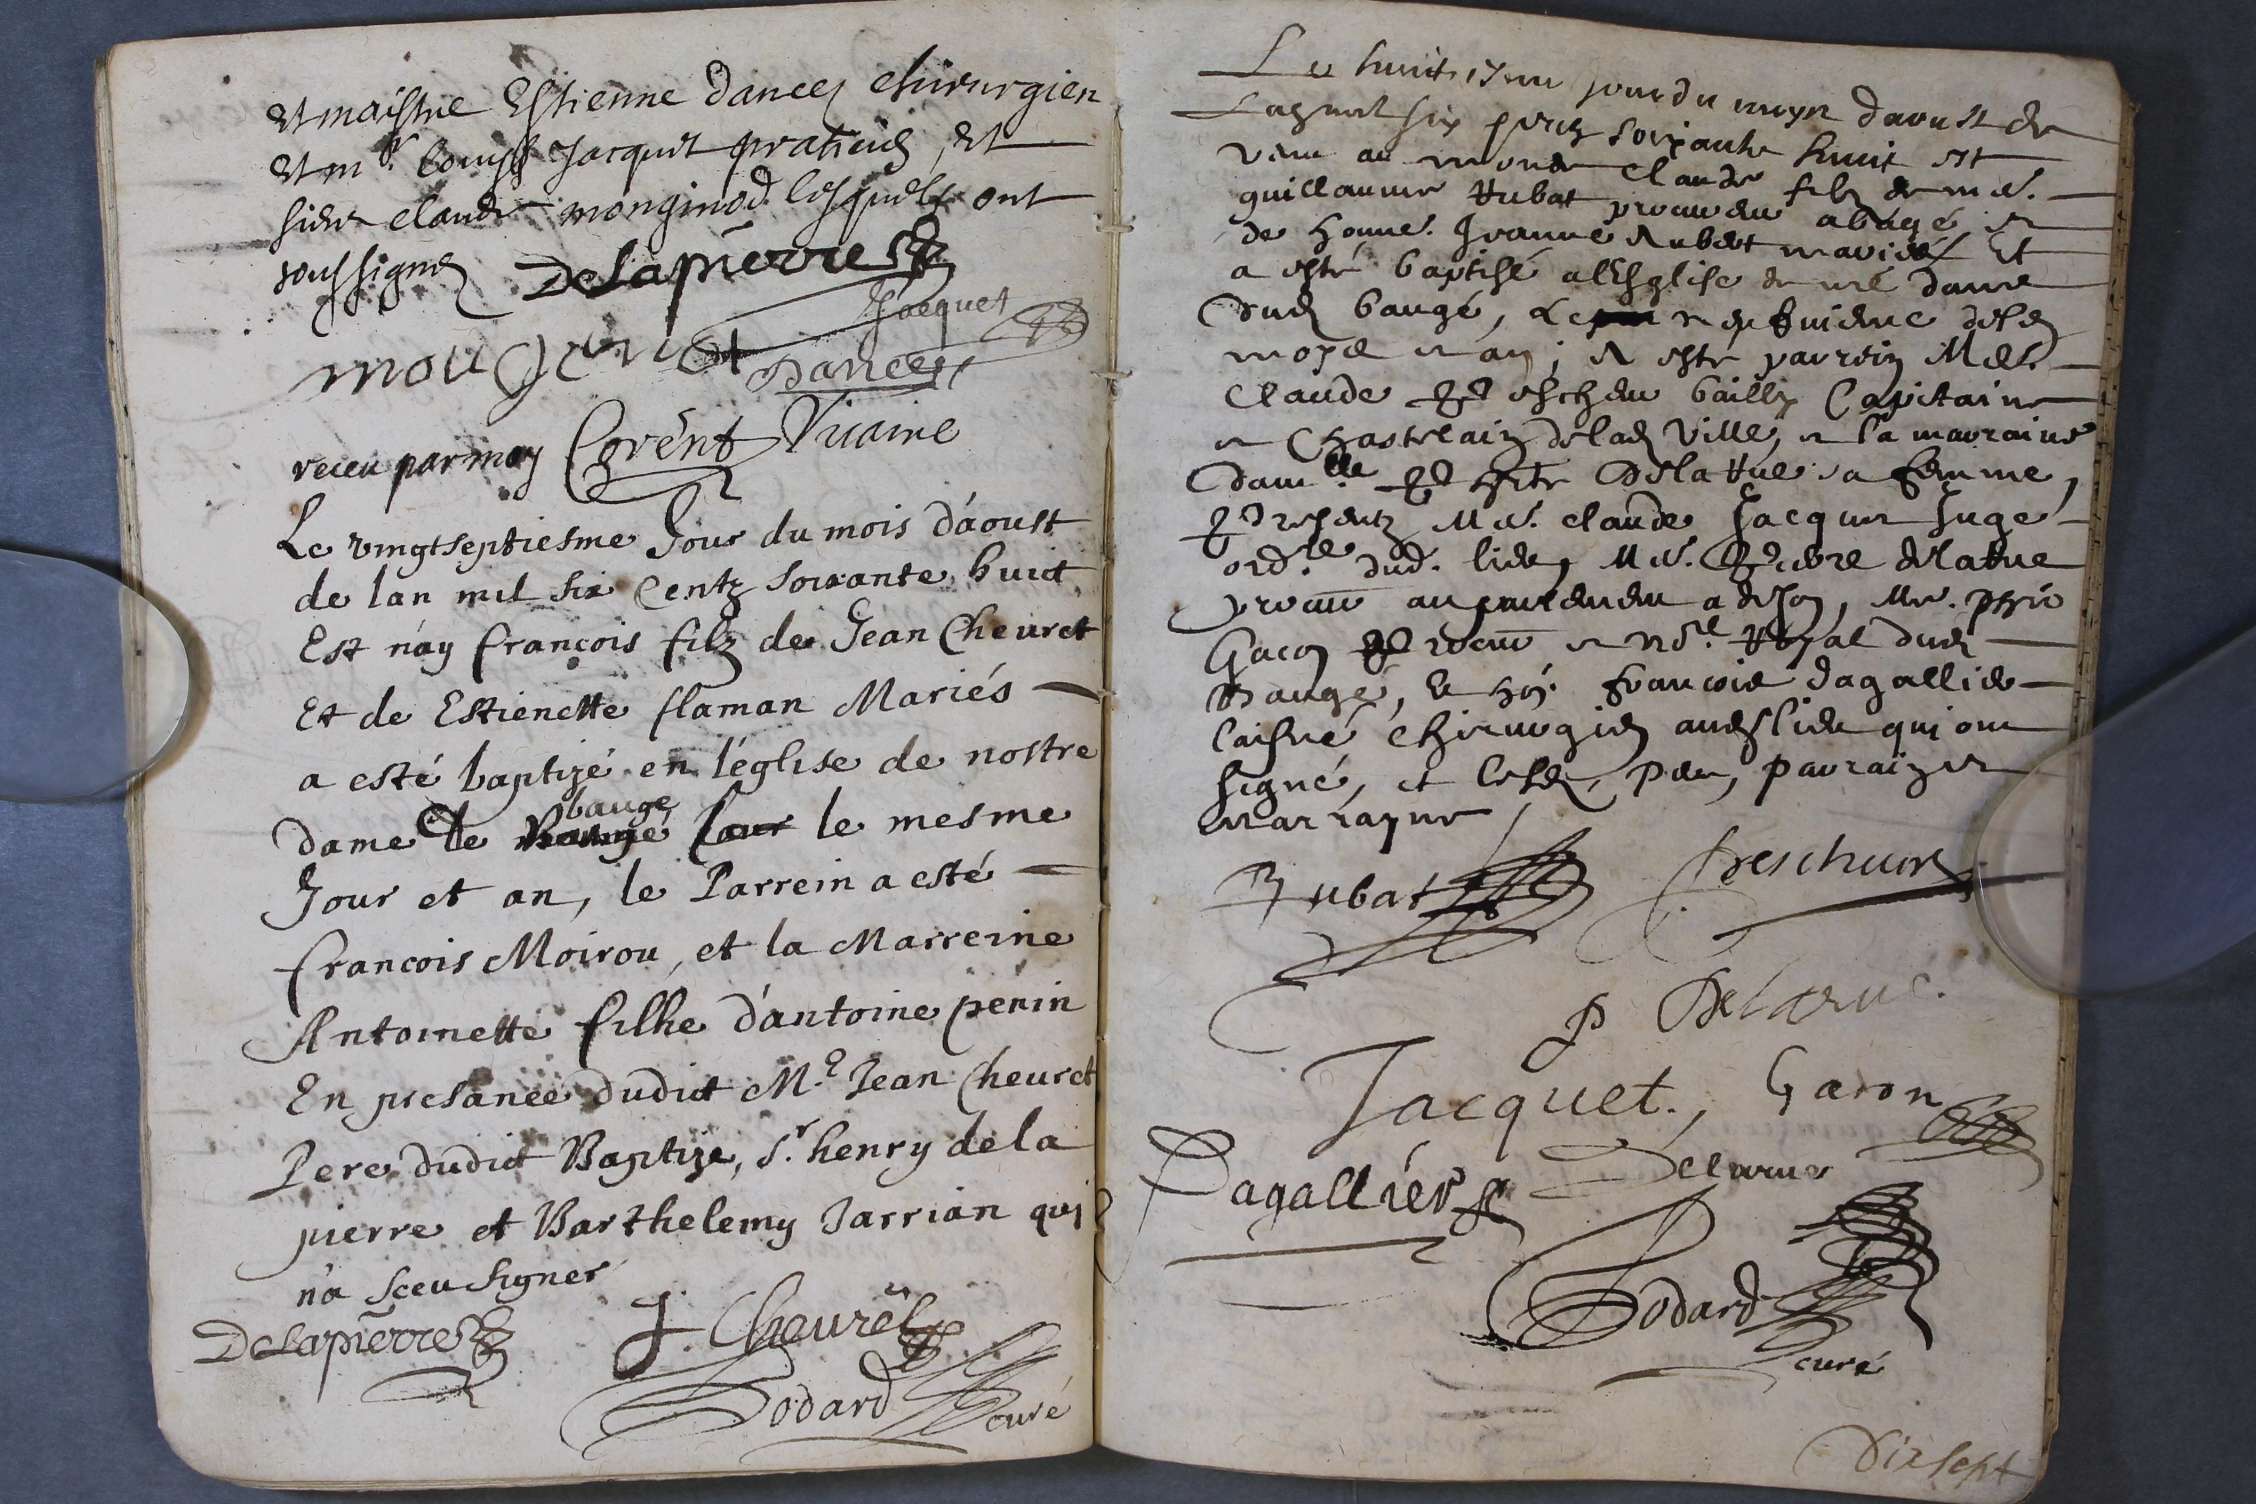 et maistre Estienne dancey chirurgien
et mr Louys Jacquet praticien, et
sieur claude monginod lesquels ont
soussignez Delapierre
Jacquet
monginod
Dancey
receu par moy Corent Vicaire
Le vingtseptiesme Jour du mois d'aoust
de lan mil six Centz soixante huict
Est nay francois filz de Jean Cheuret
Et de Estienette flaman Mariés
a esté baptizé en l'église de nostre
bauge
dame de le mesme
Jour et an, le Parrein a esté
francois Moirou, et la Marreine
Antoinette fille d'antoine penin
En presance dudict M.e Jean Cheuret
Pere dudict Baptize, s.r henry dela
pierre et Barthelemy Jarrian qui
n'a sceu signer
Delapierre J. Cheuret
Bodard curé
Le huictiesme jour du moys daoust de
Lan mil six centz soixante huict est
venu au monde Claude filz de me.
guillaume Rubat procureur abagé et
de honne. Jeanne Aubert mariés Et
a esté baptisé a lEsglise de nre dame
dud baugé, Le neufuieme desd
moys et an; A esté parrein Me.
Claude escheu bailly Capitaine
et Chastelain de lad Ville, et la marraine
Dam.lle Delarue sa femme,
Presentz Me. claude Jacquet Juge
ord.re dud. lieu, Me. Pierre delarue
procur au parlement a dijon, Me.
Gacon procur et no.re Royal dud
Baugé, et hon. francois dagallier
laisné chirurgien aud lieu qui ont
signé, et lesd, pere, parrain et
marrayne
Rubat Descheur
P Delarue.
Jacquet., Gacon
Dagallier Delarue
Bodard
curé
Dixsept